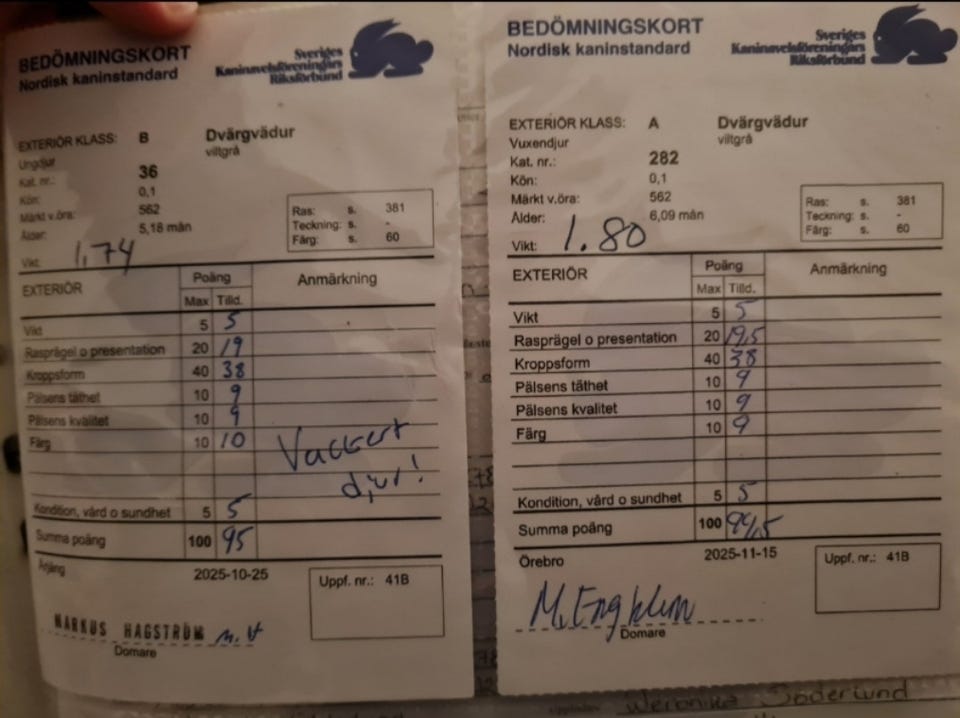 BEDÖMNINGSKORT
Nordisk kaninstandard
Sveriges
Kaninavelsföreningars
Riksförbund
EXTERIÖR KLASS: B Dvärgvädur
Ungdjur viltgrå
Kat. nr.: 36
Kön: 0,1
Märkt v.öra: 562
Ålder: 5,18 mån
Ras: s. 381
Teckning: s. -
Färg: s. 60
Vikt: 1,74
EXTERIÖR Poäng Anmärkning
Max Tilld.
Vikt 5 5
Rasprägel o presentation 20 19
Kroppsform 40 38
Pälsens täthet 10 9
Pälsens kvalitet 10 9
Färg 10 10
Vackert
djur!
Kondition, vård o sundhet 5 5
Summa poäng 100 95
Årjäng 2025-10-25 Uppf. nr.: 41B
MARKUS HAGSTRÖM
Domare
BEDÖMNINGSKORT
Nordisk kaninstandard
Sveriges
Kaninavelsföreningars
Riksförbund
EXTERIÖR KLASS: A Dvärgvädur
Vuxendjur viltgrå
Kat. nr.: 282
Kön: 0,1
Märkt v.öra: 562
Ålder: 6,09 mån
Ras: s. 381
Teckning: s. -
Färg: s. 60
Vikt: 1.80
EXTERIÖR Poäng Anmärkning
Max Tilld.
Vikt 5 5
Rasprägel o presentation 20 19,5
Kroppsform 40 38
Pälsens täthet 10 9
Pälsens kvalitet 10 9
Färg 10 9
Kondition, vård o sundhet 5 5
Summa poäng 100 94,5
Örebro 2025-11-15 Uppf. nr.: 41B
Domare
Weronika Söderlund